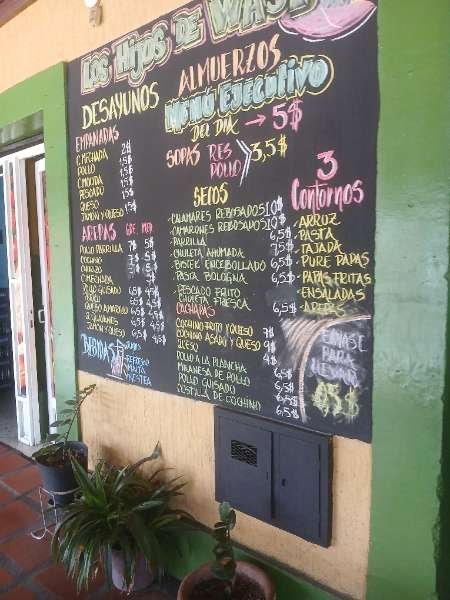 Los Hijos DE
ALMUERZOS
Menú Ejecutivo
DEL DIA → 5$
SOPAS RES
POLLO 3,5$
DESAYUNOS
EMPANADAS
C.MECHADA 2$
POLLO 1,5$
C.MOLIDA 1,5$
PESCADO 1,5$
QUESO 1,5$
JAMÓN Y QUESO
AREPAS
POLLO PARRILLA 7$ 5$
COCHINO 7$ 5$
C.MECHADA
POLLO GUISADO
QUESO AMARILLO
JAMÓN Y QUESO
BEBIDAS
REFRESCO
MALTA
NESTEA
SECOS
-CALAMARES REBOSADOS 10$
-CAMARONES REBOSADOS 10$
-PARRILLA 6,5$
-CHULETA AHUMADA 7,5$
-BISTEK ENCEBOLLADO 6,5$
-PASTA BOLOGNA 6,5$
-PESCADO FRITO
CHULETA FRESCA 6,5$
CACHAPAS
COCHINO FRITO Y QUESO 7$
COCHINO ASADO Y QUESO 9$
QUESO 4$
POLLO A LA PLANCHA 6,5$
MILANESA DE POLLO 6,5$
POLLO GUISADO 6,5$
COSTILLA DE COCHINO 6,5$
3
Contornos
-ARROZ
-PASTA
-TAJADA
-PURE PAPAS
-PAPAS FRITAS
-ENSALADAS
-AREPAS
ENVASE
PARA
LLEVAR